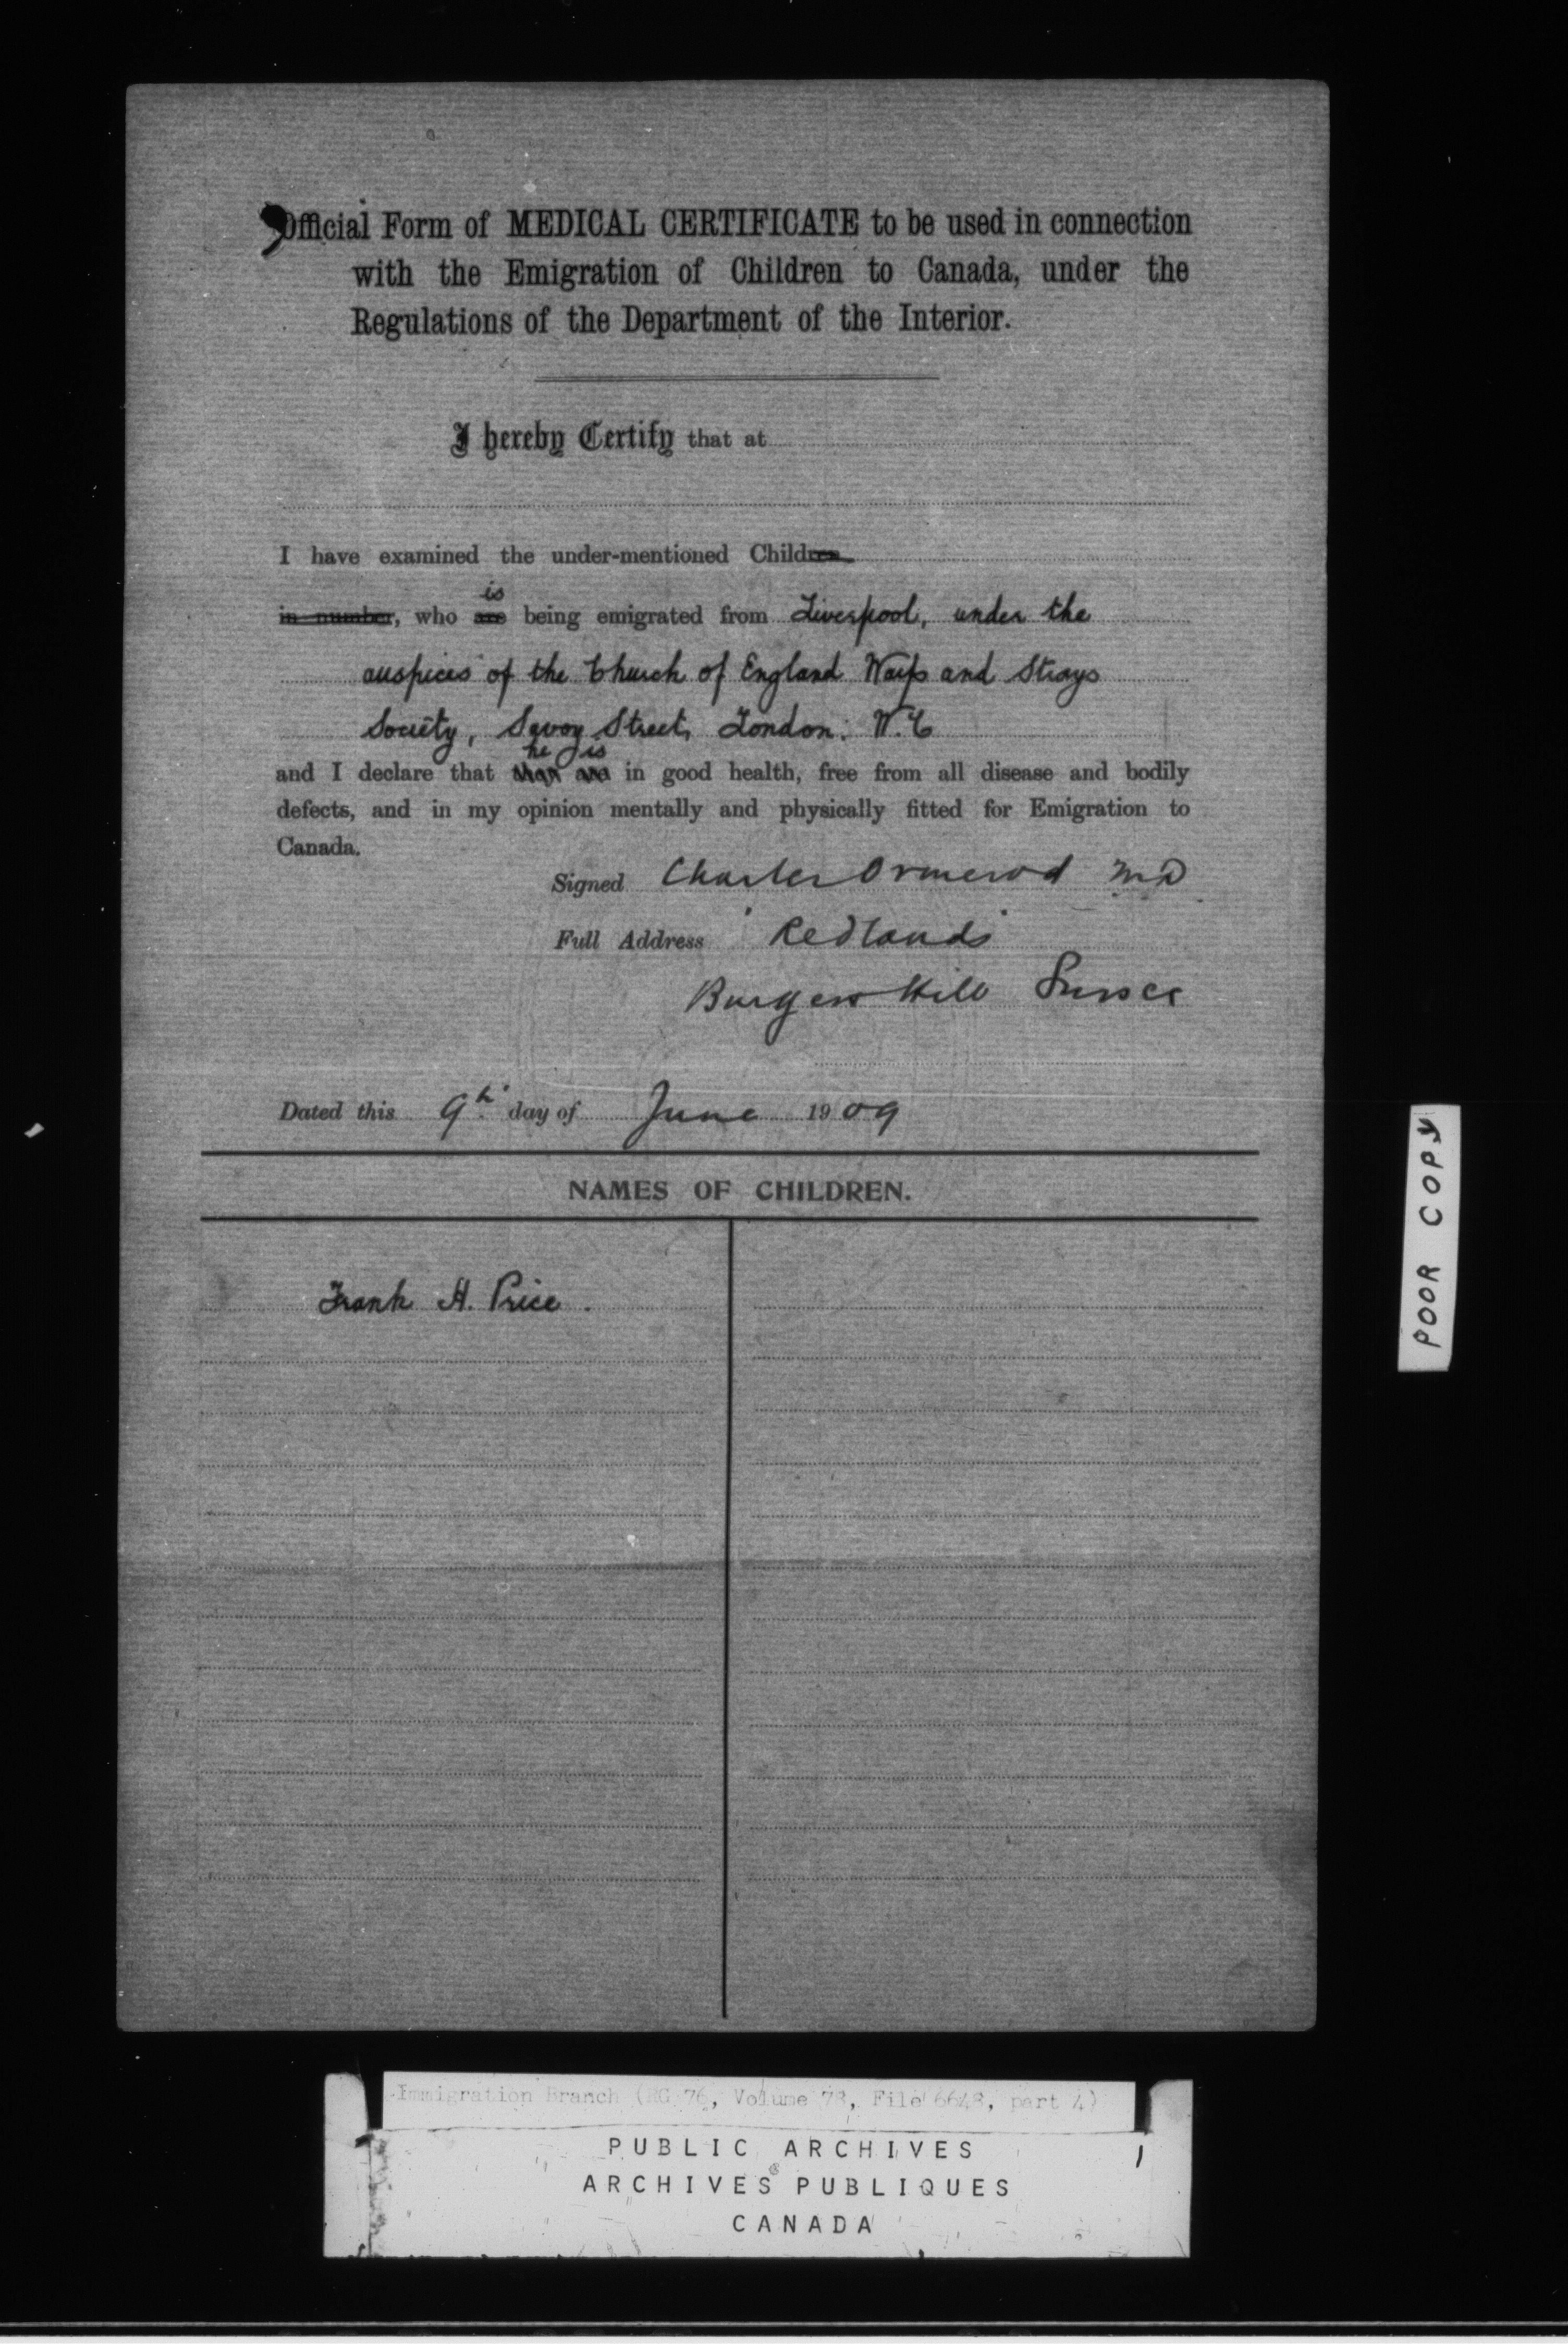 Official Form of MEDICAL CERTIFICATE to be used in connection
with the Emigration of Children to Canada, under the
Regulations of the Department of the Interior.
I hereby Certify that at
I have examined the under-mentioned Children
is
in number, who are being emigrated from Liverpool, under the
auspices of the Church of England Waifs and Strays
Society, Savoy Street, London. W.C
he is
and I declare that they are in good health, free from all disease and bodily
defects, and in my opinion mentally and physically fitted for Emigration to
Canada.
Signed Charles Ormerod MD
Full Address Redlands
Burgess Hill Sussex
Dated this 9th day of June 1909
NAMES OF CHILDREN.
Frank H. Price.
POOR COPY
Immigration Branch (RG 76, Volume 78, File 6648, part 4)
PUBLIC ARCHIVES
ARCHIVES PUBLIQUES
CANADA